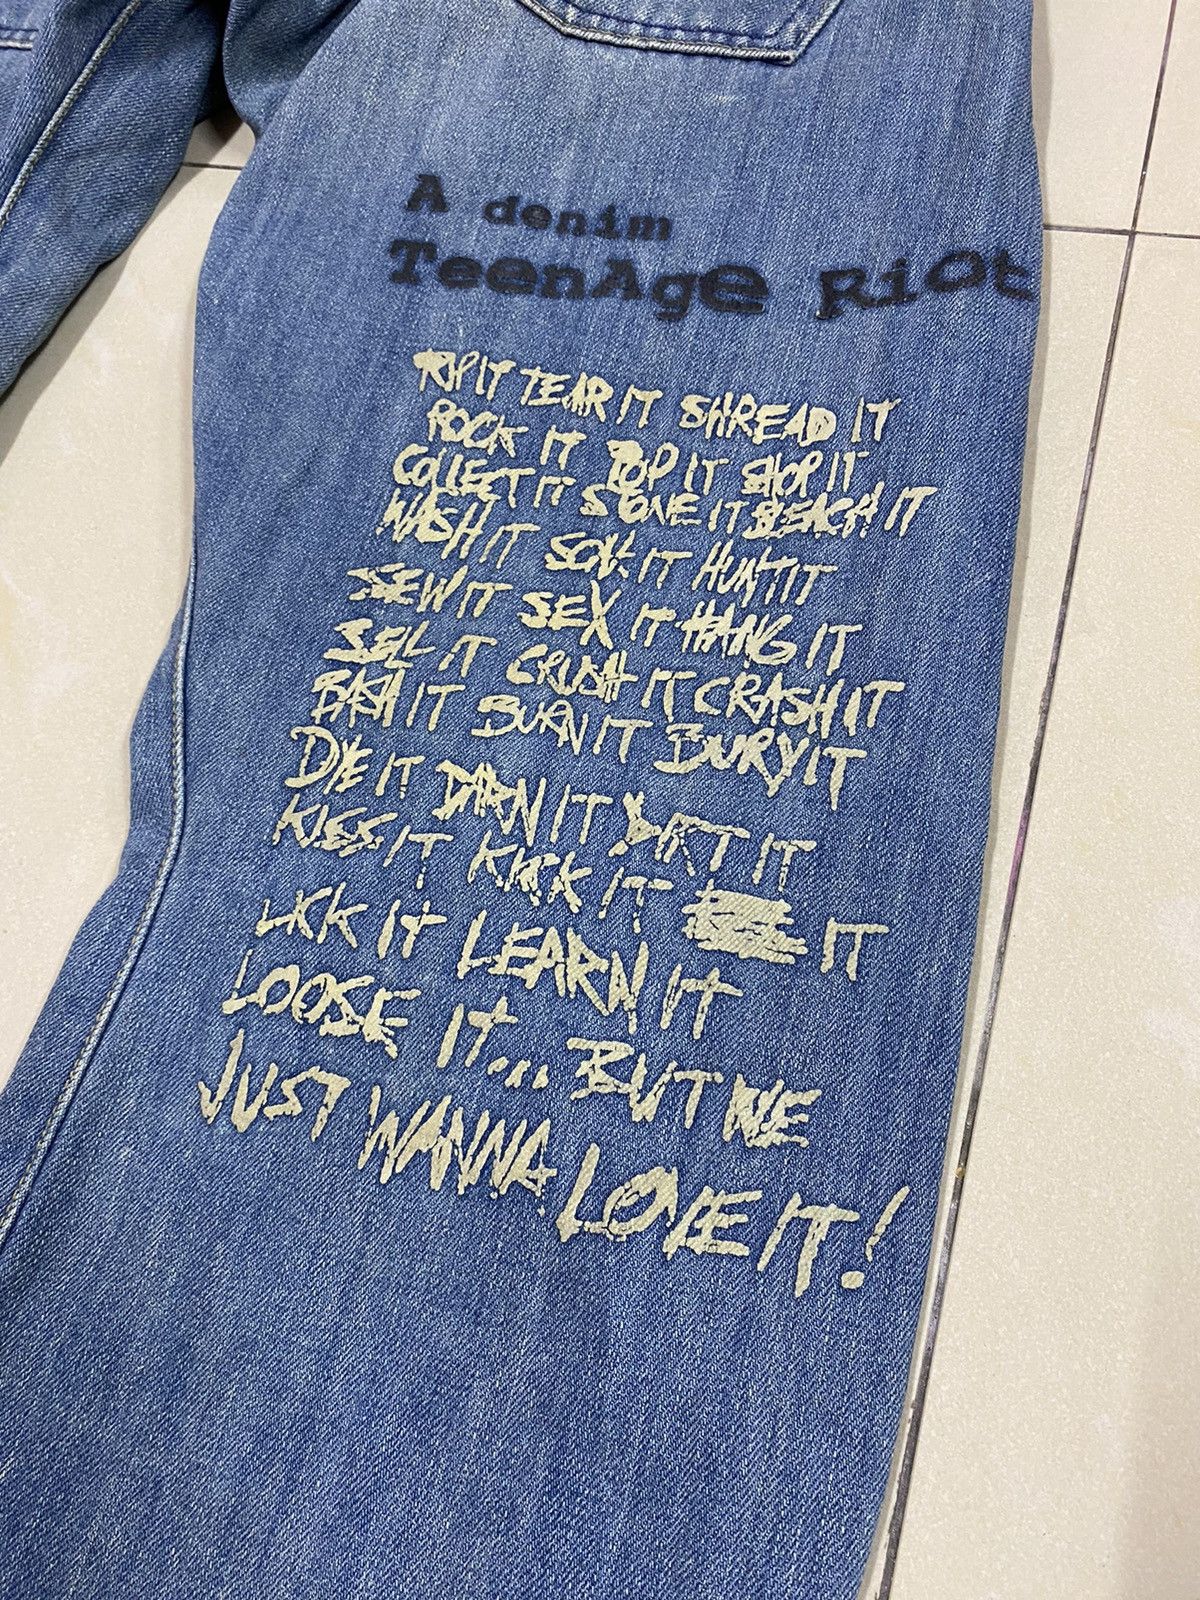 A denim
TeenAge RiOt
RIP IT TEAR IT SHREAD IT
ROCK IT POP IT SHOP IT
COLLECT IT STONE IT BLEACH IT
WASH IT SOAK IT HUNT IT
SEW IT SEX IT HANG IT
SELL IT CRUSH IT CRASH IT
BASH IT BURN IT BURY IT
DYE IT DARN IT DIRT IT
KISS IT KICK IT IT
LICK IT LEARN IT
LOOSE IT... BUT WE
JUST WANNA LOVE IT!